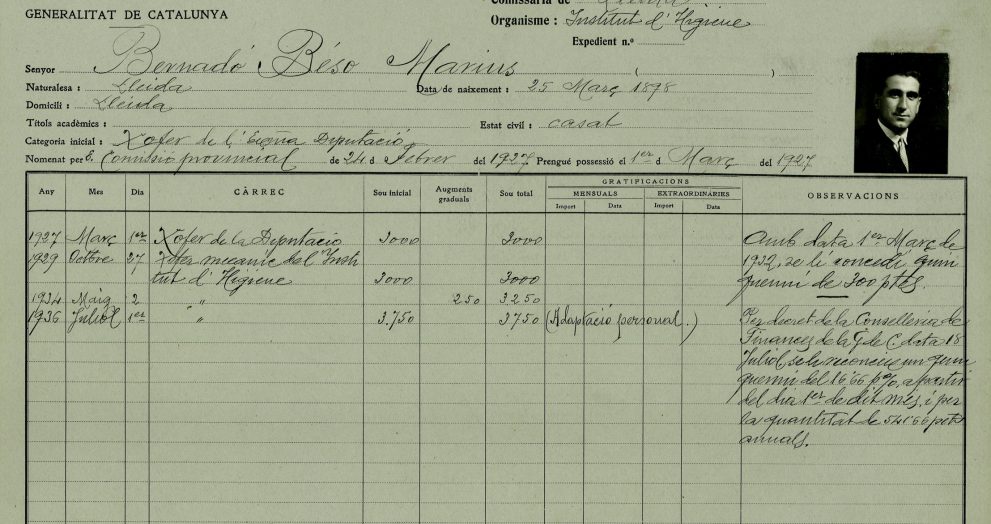 GENERALITAT DE CATALUNYA
Comissaria de
Organisme : Institut d'Higiene
Expedient n.º
Senyor Bernadó Béso Marius ( )
Naturalesa : Lleida Data de naixement : 25 Març 1898
Domicili : Lleida
Títols acadèmics : Estat civil : casat
Categoria inicial : Xofer de l'Excma Diputació
Nomenat per C. Comissió provincial de 24 d Febrer del 1927 Prengué possessió el 1er d Març del 1927
Any Mes Dia CÀRREC Sou inicial Augments graduals Sou total GRATIFICACIONS OBSERVACIONS
MENSUALS EXTRAORDINÀRIES
Import Data Import Data
1927 Març 1er Xofer de la Diputació 3000 3000 Amb data 1er Març de
1929 Octbre 27 Xofer mecanic del Insti 1932, se li concedí quin
tut d'Higiene 3000 3000 quenni de 300 ptes.
1934 Maig 2 " 250 3250
1936 Juliol 1er " " 3.750 3750 (Adaptació personal.) Per decret de la Conselleria de
Finances de la G. de C. data 18
Juliol, se li reconeix un quin
quenni del 16'66 p%, a partir
del dia 1er de dit mes, i per
la quantitat de 541'66 pts
anuals.